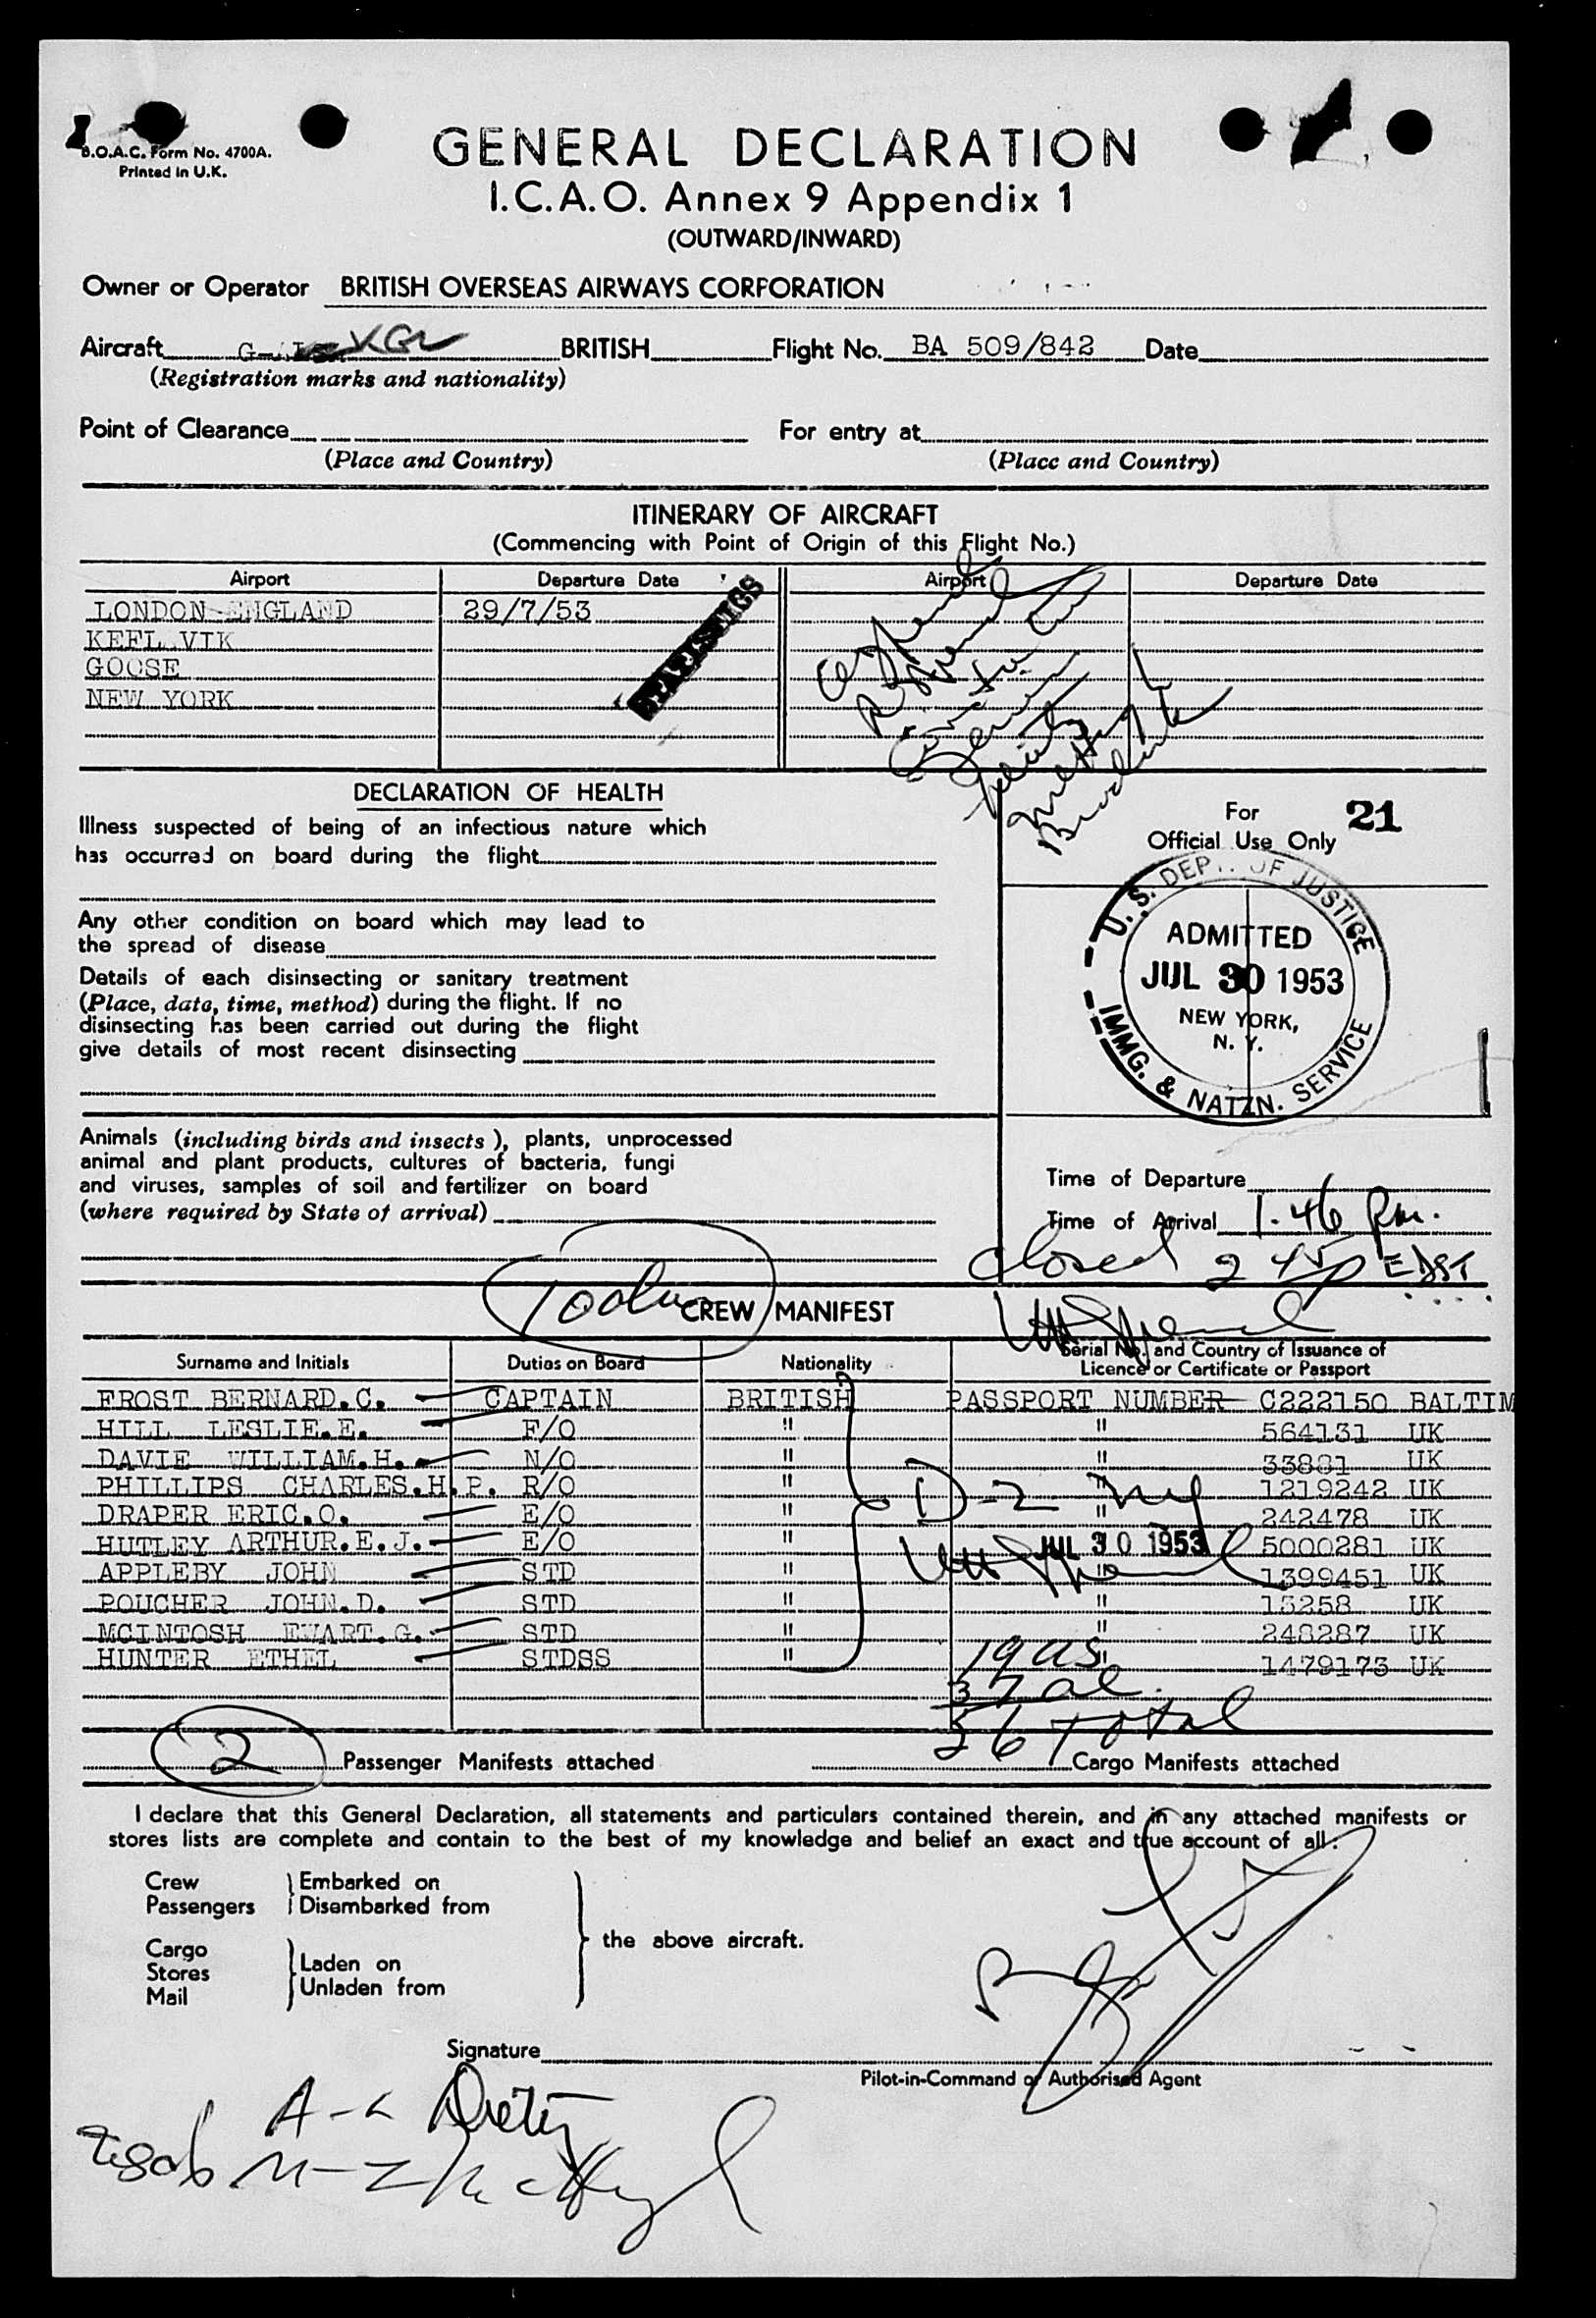 B.O.A.C. Form No. 4700A.
Printed in U.K.
GENERAL DECLARATION
I.C.A.O. Annex 9 Appendix 1
(OUTWARD/INWARD)
Owner or Operator BRITISH OVERSEAS AIRWAYS CORPORATION
Aircraft G- BRITISH Flight No. BA 509/842 Date
(Registration marks and nationality)
Point of Clearance For entry at
(Place and Country) (Place and Country)
ITINERARY OF AIRCRAFT
(Commencing with Point of Origin of this Flight No.)
Airport Departure Date Airport Departure Date
LONDON ENGLAND 29/7/53
KEFL VIK
GOOSE
NEW YORK
DECLARATION OF HEALTH
Illness suspected of being of an infectious nature which
has occurred on board during the flight
Any other condition on board which may lead to
the spread of disease
Details of each disinsecting or sanitary treatment
(Place, data, time, method) during the flight. If no
disinsecting has been carried out during the flight
give details of most recent disinsecting
Animals (including birds and insects), plants, unprocessed
animal and plant products, cultures of bacteria, fungi
and viruses, samples of soil and fertilizer on board
(where required by State of arrival)
For 21
Official Use Only
U.S. DEPT. OF JUSTICE
ADMITTED
JUL 30 1953
NEW YORK,
N. Y.
IMMG. & NATZN. SERVICE
Time of Departure
Time of Arrival 1.46 Pm.
Closed 2 45p EDST
CREW MANIFEST
Surname and Initials Duties on Board Nationality Serial No. and Country of Issuance of
Licence or Certificate or Passport
FROST BERNARD.C. CAPTAIN BRITISH PASSPORT NUMBER C222150 BALTIM
HILL LESLIE.E. F/O " " 564131 UK
DAVIE WILLIAM.H. N/O " " 33881 UK
PHILLIPS CHARLES.H.P. R/O " " 1219242 UK
DRAPER ERIC.O. E/O " " 242478 UK
HUTLEY ARTHUR.E.J. E/O " " 5000281 UK
APPLEBY JOHN STD " " 1399451 UK
POUCHER JOHN.D. STD " " 13258 UK
MCINTOSH EWART.G. STD " " 248287 UK
HUNTER ETHEL STDSS " " 1479173 UK
D-2
JUL 30 1953
19 US
37 al.
56 Total
2 Passenger Manifests attached Cargo Manifests attached
I declare that this General Declaration, all statements and particulars contained therein, and in any attached manifests or
stores lists are complete and contain to the best of my knowledge and belief an exact and true account of all:
Crew Embarked on
Passengers Disembarked from
the above aircraft.
Cargo
Stores Laden on
Mail Unladen from
Signature
Pilot-in-Command or Authorised Agent
A-L
M-Z